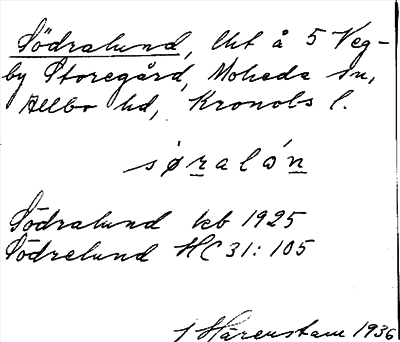 Södralund, lht å 5 Veg-
by Storegård, Moheda sn,
Allbo hd, Kronobs l.
søralón
Södralund kb 1925
Södrelund HC 31: 105
Härenstam 1936